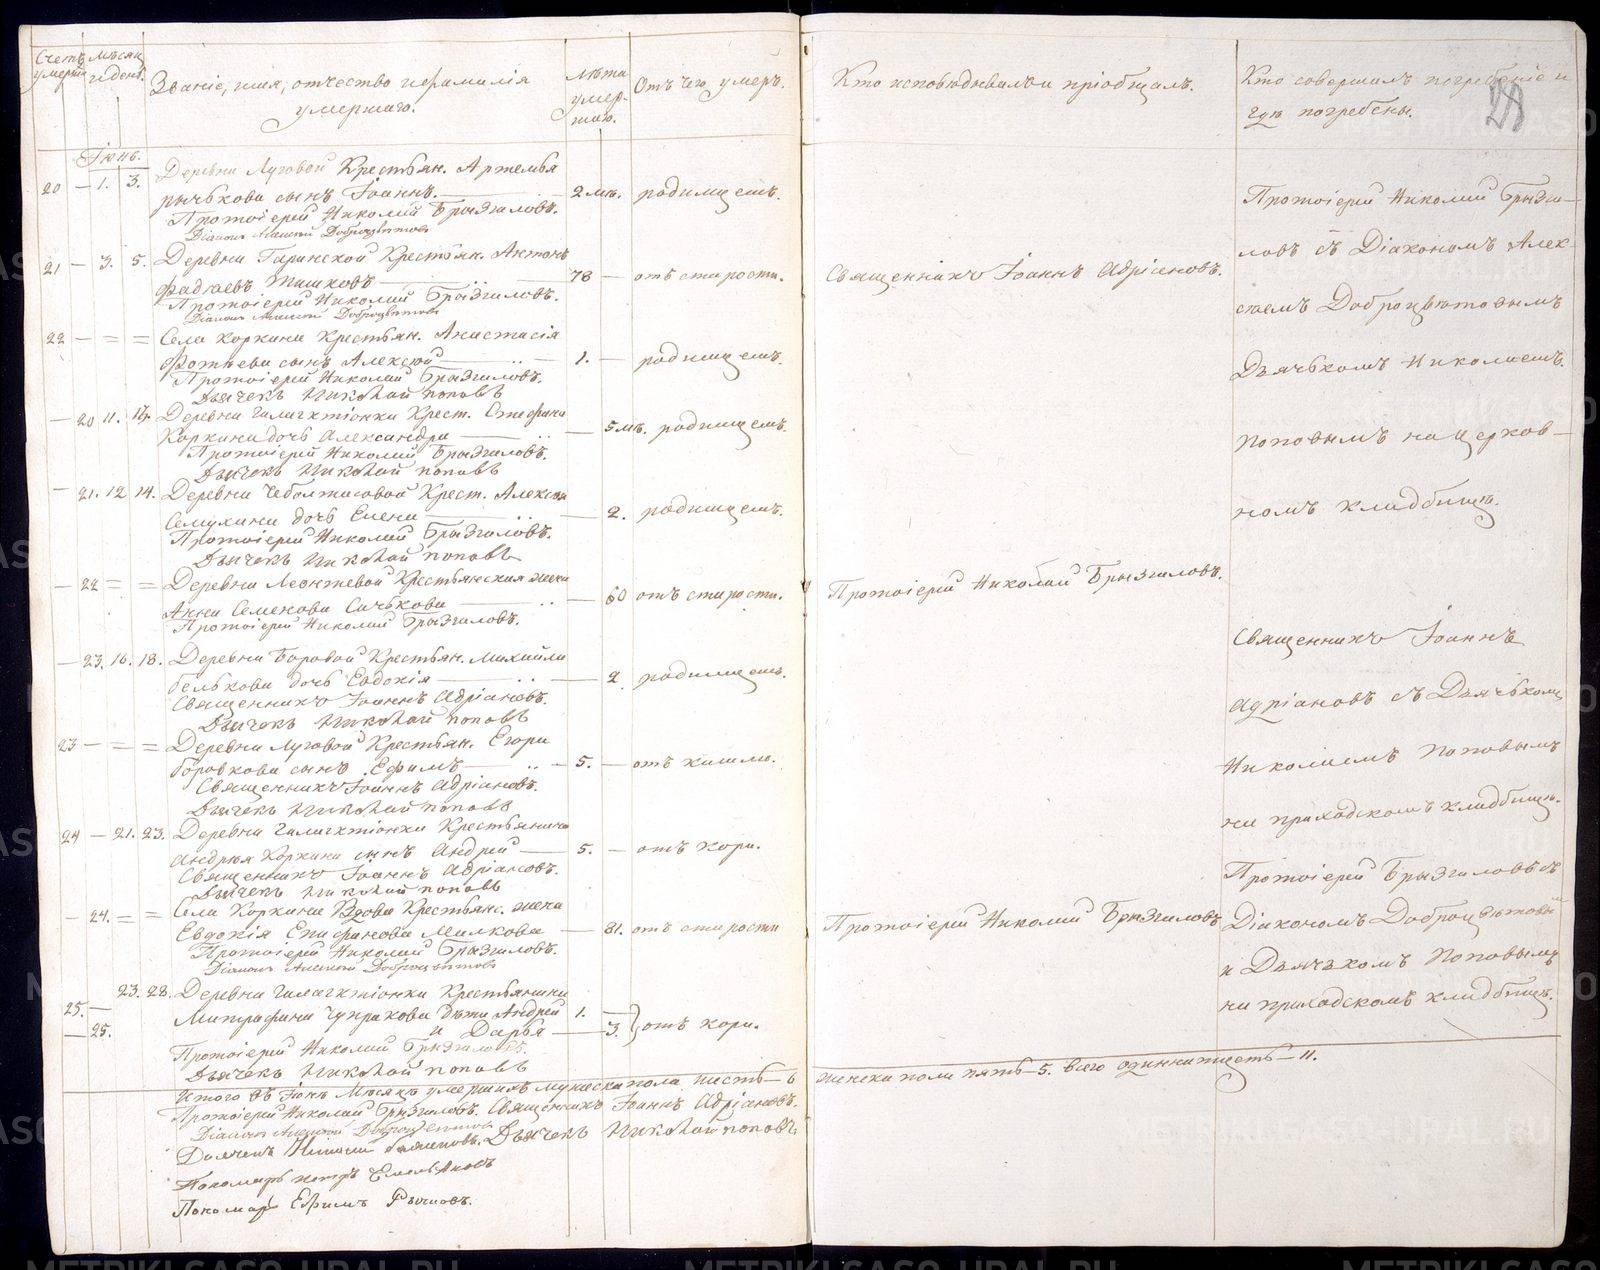 Счетъ умерш.
Мѣсяц. и день.
Званіе, имя, отчество и фамилія
умершаго.
Лѣта
умер-
шаго.
Отъ чего умеръ.
Кто исповѣдывалъ и пріобщалъ.
Кто совершалъ погребеніе и
гдѣ погребены.
Іюнь.
20 — 1. 3. Деревни Луговой Крестьян. Артемья
Рычькова сынъ Іоаннъ. 2 мѣ. родимцемъ.
Протоіерей Николай Брызгаловъ.
Діаконъ Алексей Доброцвѣтовъ
21 — 3. 5. Деревни Гаринской Крестьян. Антонъ
Фадѣевъ Тишковъ 78 — отъ старости.
Протоіерей Николай Брызгаловъ.
Діаконъ Алексей Доброцвѣтовъ
Священникъ Іоаннъ Адріановъ.
22 — = = Села Коркина Крестьян. Анастасія
сынъ Алексѣй 1. — родимцемъ.
Протоіерей Николай Брызгаловъ.
Дьячекъ Николай Поповъ
— 20 11. 14. Деревни Галагктіонки Крест. Стефана
Коркина дочь Александра — 5 мѣ. родимцемъ.
Протоіерей Николай Брызгаловъ.
Дьячекъ Николай Поповъ
— 21. 12 14. Деревни Чеболтасовой Крест. Алексѣя
Семухина дочь Елена — 2. родимцемъ.
Протоіерей Николай Брызгаловъ.
Дьячекъ Николай Поповъ
— 22 = = Деревни Леонтьевой Крестьянская жена
Анна Семенова Сычькова — 60 отъ старости.
Протоіерей Николай Брызгаловъ.
Протоіерей Николай Брызгаловъ.
— 23. 16. 18. Деревни Боровой Крестьян. Михайла
Белькова дочь Евдокія — 2 родимцемъ.
Священникъ Іоаннъ Адріановъ.
Дьячекъ Николай Поповъ
23 — = = Деревни Луговой Крестьян. Егора
Боровкова сынъ Ефимъ — 5. — отъ кашлю.
Священникъ Іоаннъ Адріановъ.
Дьячекъ Николай Поповъ
24 — 21. 23. Деревни Галагктіонки Крестьянина
Андрея Коркина сынъ Андрей — 5. — отъ кори.
Священникъ Іоаннъ Адріановъ.
Дьячекъ Николай Поповъ
— 24. = = Села Коркина Вдова Крестьянс. жена
Евдокія Епифанова Милкова — 81. отъ старости
Протоіерей Николай Брызгаловъ.
Діаконъ Алексей Доброцвѣтовъ
Протоіерей Николай Брызгаловъ
23. 28. Деревни Галагктіонки Крестьянина
25. — Митрофана Чупракова дѣти Андрей 1. —
— 25. и Дарья — 3. } отъ кори.
Протоіерей Николай Брызгаловъ.
Дьячекъ Николай Поповъ
Протоіерей Николай Брызга-
ловъ съ Діакономъ Алек-
сіемъ Доброцвѣтовымъ
Дьячькомъ Николаемъ
Поповымъ на церков-
номъ кладбищѣ.
Священникъ Іоаннъ
Адріановъ съ Дьячькомъ
Николаемъ Поповымъ
на приходскомъ кладбищѣ.
Протоіерей Брызгаловъ съ
Діакономъ Доброцвѣтовым
и Дьячькомъ Поповымъ
на приходскомъ кладбищѣ.
Итого въ Іюнѣ Мѣсяцѣ умершихъ мужеска пола шесть — 6 женска пола пять — 5. всего одиннатцеть — 11.
Протоіерей Николай Брызгаловъ. Священникъ Іоаннъ Адріановъ.
Діаконъ Алексей Доброцвѣтовъ
Дьячекъ Николай Поповъ
Пономарь Петръ Емельяновъ
Пономарь Ефимъ Рычковъ.